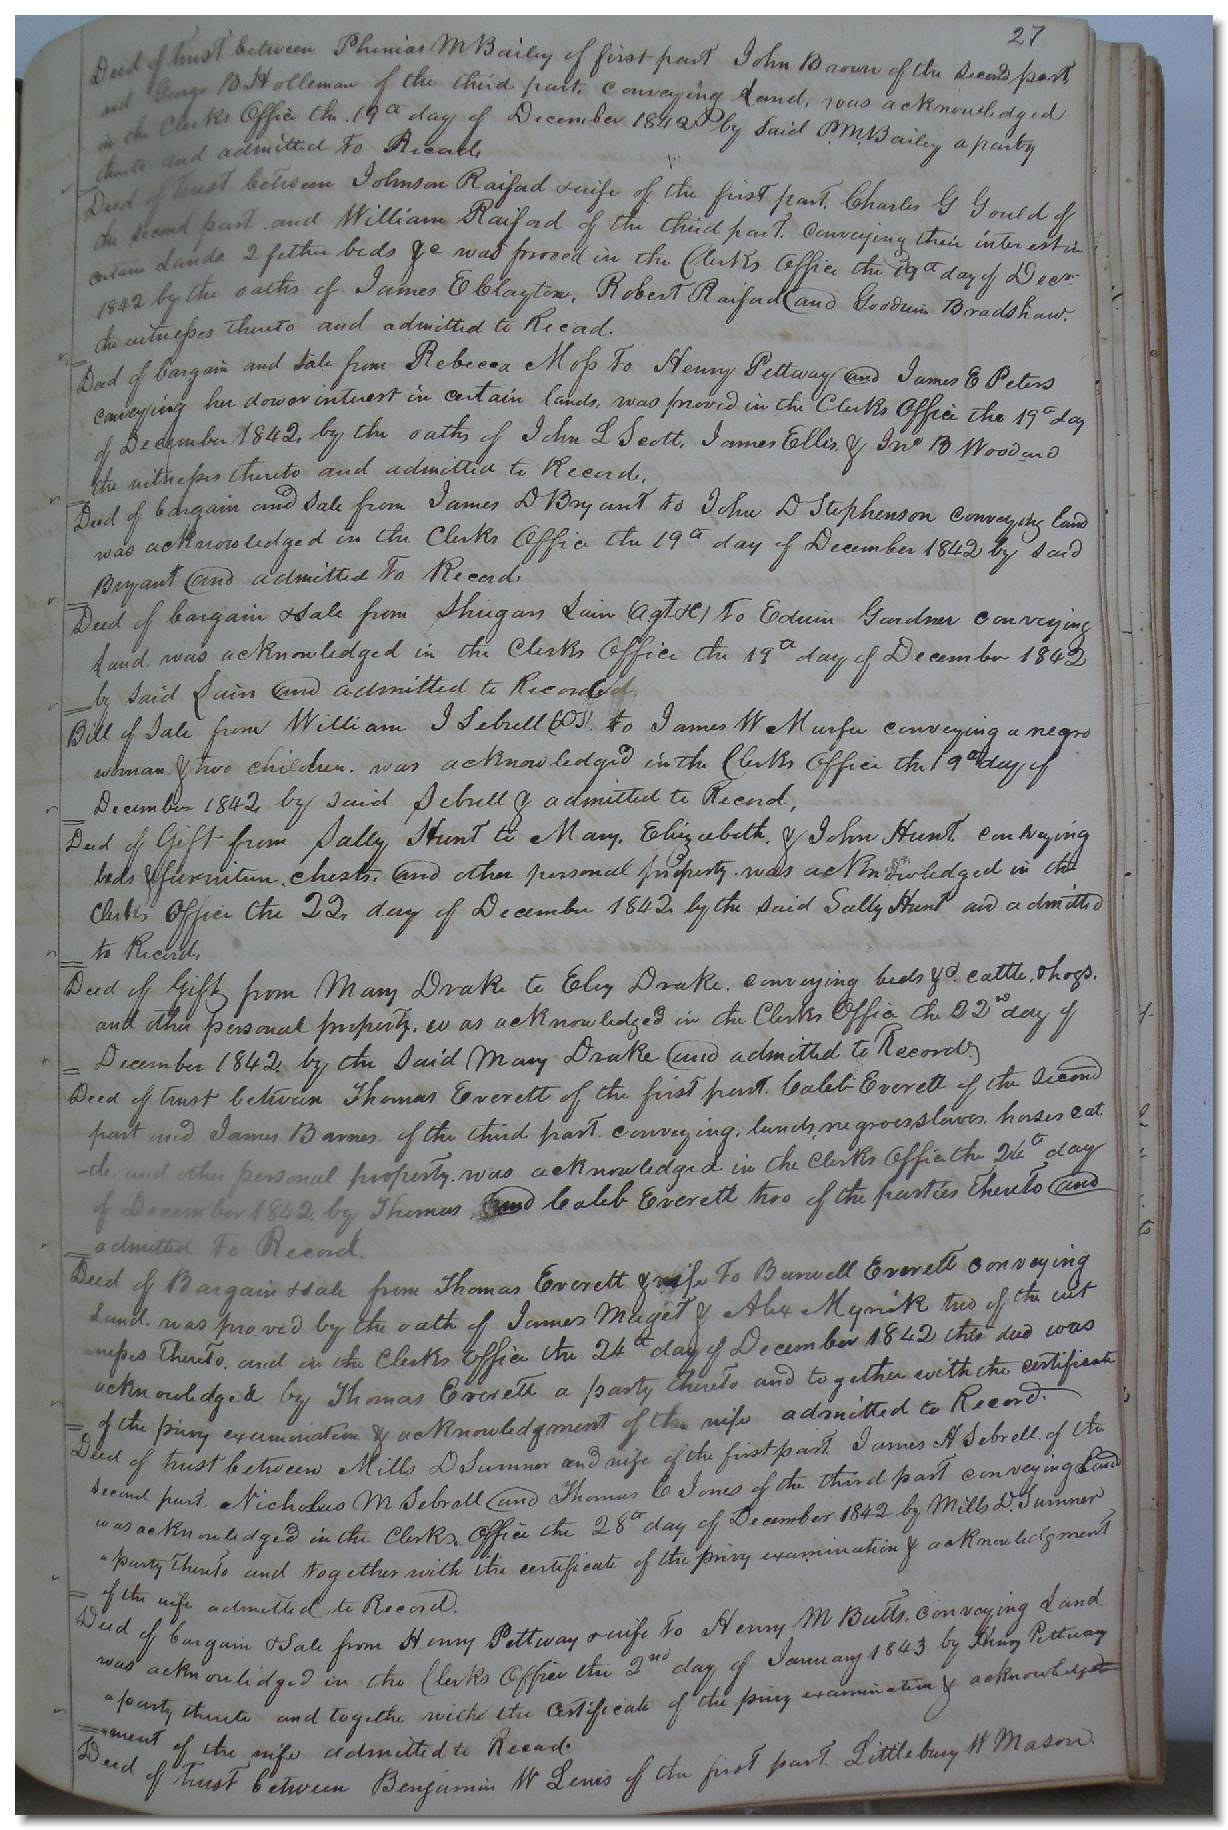 27
Deed of trust between Phinias M Bailey of first part John Brown of the second part,
and George B Holleman of the third part, conveying Land, was acknowledged
in the Clerks Office the 19th day of December 1842 by said P. M. Bailey a party
thereto and admitted to Record,
Deed of trust between Johnson Raiford & wife of the first part, Charles G Gould of
the second part, and William Raiford of the third part, conveying their interest in
certain Lands 2 fether beds &c was proved in the Clerks Office the 19th day of Decr.
1842 by the oaths of James E Clayton, Robert Raiford and Goodwin Bradshaw.
the witnesses thereto and admitted to Record.
Deed of bargain and sale from Rebecca Moss to Henry Pettway and James E Peters
conveying her dower interest in certain lands, was proved in the Clerks Office the 19th day
of December 1842, by the oaths of John L Scott, James Ellis, & Jno B Woodard
the witnesses thereto and admitted to Record,
Deed of bargain and sale from James D Bryant to John D Stephenson conveying land
was acknowledged in the Clerks Office the 19th day of December 1842 by said
Bryant and admitted to Record,
Deed of bargain & sale from Lain (agt &c) to Edwin Gardner conveying
Land. was acknowledged in the Clerks Office the 19th day of December 1842
by said Lain and admitted to Record
Bill of Sale from William J Sebrell to James W Murfee conveying a negro
woman & two children. was acknowledged in the Clerks Office the 19th day of
December 1842 by said Sebrell & admitted to Record,
Deed of Gift from Sally Hunt to Mary, Elizabeth, & John Hunt. conveying
beds & furniture, chests, and other personal property. was acknowledged in the
Clerks Office the 22 day of December 1842 by the said Sally Hunt and admitted
to Record,
Deed of Gift from Mary Drake to Eley Drake. conveying beds &c. cattle, & hogs.
and other personal property. was acknowledged in the Clerks Office the 22nd day of
December 1842 by the said Mary Drake and admitted to Record.
Deed of trust between Thomas Everett of the first part. Caleb Everett of the second
part and James Barnes of the third part. conveying, lands, negroes slaves, horses cat
-tle. and other personal property. was acknowledged in the Clerks Office the 24th day
of December 1842, by Thomas and Caleb Everett two of the parties thereto and
admitted to Record.
Deed of Bargain & sale from Thomas Everett & wife to Burwell Everett conveying
Land. was proved by the oath of James Maget & Alex Myrick two of the wit
nesses thereto, and in the Clerks Office the 24th day of December 1842 this deed was
acknowledged by Thomas Everett a party thereto and together with the certificate
of the privy examination & acknowledgment of the wife admitted to Record.
Deed of trust between Mills D Sumner and wife of the first part. James H Sebrell of the
second part. Nicholas M Sebrell and Thomas C Jones of the third part conveying Land
was acknowledged in the Clerks Office the 28th day of December 1842 by Mills D. Sumner
a party thereto and together with the certificate of the privy examination & acknowledgment
of the wife admitted to Record.
Deed of bargain & Sale from Henry Pettway & wife to Henry M Butts. conveying Land
was acknowledged in the Clerks Office the 2nd day of January 1843 by Henry Pettway
a party thereto and togethe with the Certificate of the privy examination & acknowledge
-ment of the wife admitted to Record
Deed of trust between Benjamin W Lewis of the first part. Littlebury W Mason.